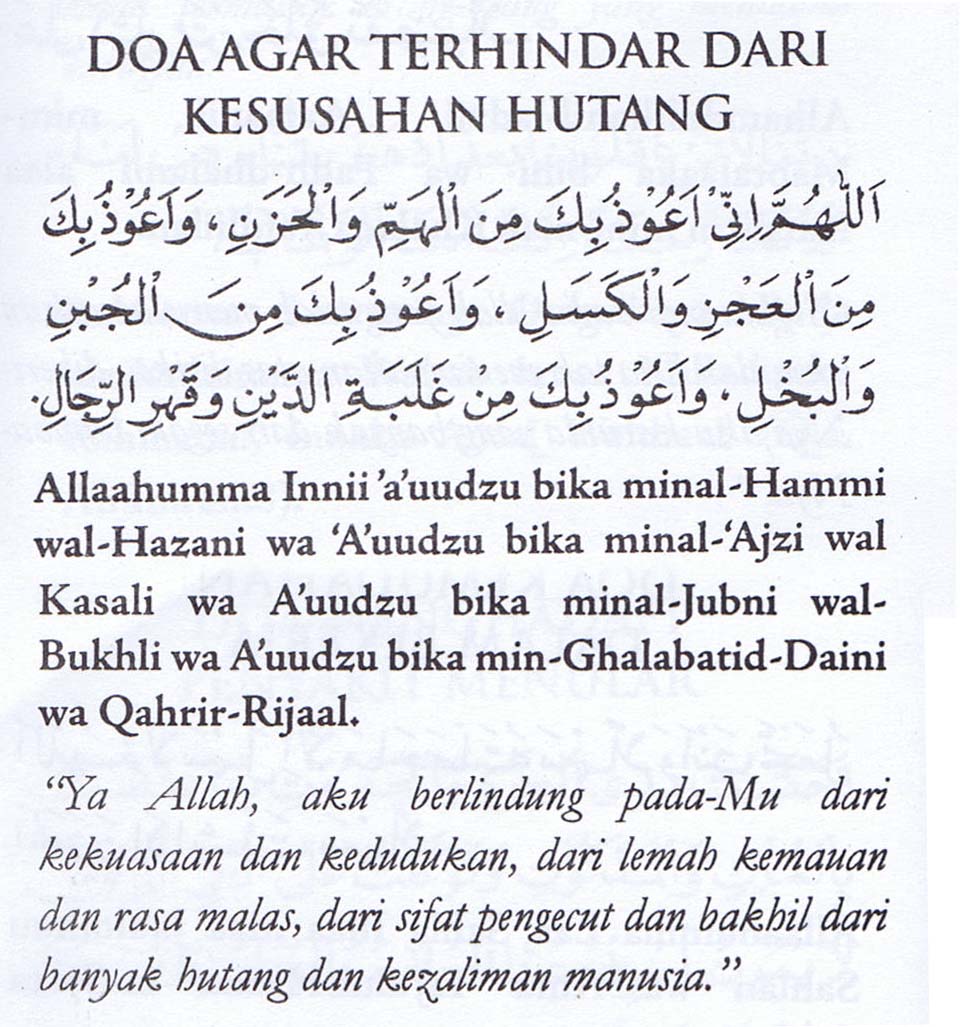 DOA AGAR TERHINDAR DARI
KESUSAHAN HUTANG
اَللّٰهُمَّ اِنِّيْ اَعُوْذُ بِكَ مِنَ الْهَمِّ وَالْحَزَنِ، وَاَعُوْذُ بِكَ
مِنَ الْعَجْزِ وَالْكَسَلِ، وَاَعُوْذُ بِكَ مِنَ الْجُبْنِ
وَالْبُخْلِ، وَاَعُوْذُ بِكَ مِنْ غَلَبَةِ الدَّيْنِ وَقَهْرِ الرِّجَالِ.
Allaahumma Innii 'a'uudzu bika minal-Hammi
wal-Hazani wa 'A'uudzu bika minal-'Ajzi wal
Kasali wa A'uudzu bika minal-Jubni wal-
Bukhli wa A'uudzu bika min-Ghalabatid-Daini
wa Qahrir-Rijaal.
"Ya Allah, aku berlindung pada-Mu dari
kekuasaan dan kedudukan, dari lemah kemauan
dan rasa malas, dari sifat pengecut dan bakhil dari
banyak hutang dan kezaliman manusia."